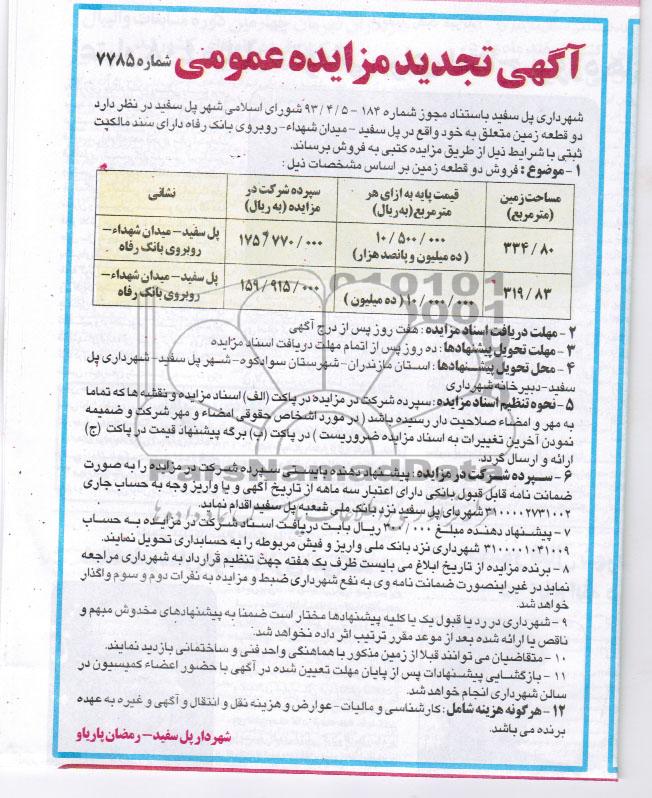 آگهی تجدید مزایده عمومی شماره ۷۷۸۵
شهرداری پل سفید باستناد مجوز شماره ۱۸۴ - ۹۳/۴/۵ شورای اسلامی شهر پل سفید در نظر دارد
دو قطعه زمین متعلق به خود واقع در پل سفید - میدان شهداء - روبروی بانک رفاه دارای سند مالکیت
ثبتی با شرایط ذیل از طریق مزایده کتبی به فروش برساند.
۱- موضوع : فروش دو قطعه زمین بر اساس مشخصات ذیل :
مساحت زمین (مترمربع) قیمت پایه به ازای هر مترمربع (به ریال) سپرده شرکت در مزایده (به ریال) نشانی
۳۳۴/۸۰ ۱۰/۵۰۰/۰۰۰ (ده میلیون و پانصد هزار) ۱۷۵/۷۷۰/۰۰۰ پل سفید - میدان شهداء - روبروی بانک رفاه
۳۱۹/۸۳ ۱۰/۰۰۰/۰۰۰ (ده میلیون) ۱۵۹/۹۱۵/۰۰۰ پل سفید - میدان شهداء - روبروی بانک رفاه
۲- مهلت دریافت اسناد مزایده : هفت روز پس از درج آگهی
۳- مهلت تحویل پیشنهادها : ده روز پس از اتمام مهلت دریافت اسناد مزایده
۴- محل تحویل پیشنهادها : استان مازندران - شهرستان سوادکوه - شهر پل سفید - شهرداری پل
سفید - دبیرخانه شهرداری
۵- نحوه تنظیم اسناد مزایده : سپرده شرکت در مزایده در پاکت (الف) اسناد مزایده و نقشه ها که تماما
به مهر و امضاء صلاحیت دار رسیده باشد (در مورد اشخاص حقوقی امضاء و مهر شرکت و ضمیمه
نمودن آخرین تغییرات به اسناد مزایده ضروریست) در پاکت (ب) برگه پیشنهاد قیمت در پاکت (ج)
ارائه و ارسال گردد.
۶- سپرده شرکت در مزایده : پیشنهاد دهنده بایستی سپرده شرکت در مزایده را به صورت
ضمانت نامه قابل قبول بانکی دارای اعتبار سه ماهه از تاریخ آگهی و یا واریز وجه به حساب جاری
۳۱۰۰۰۰۲۷۳۱۰۰۲ شهردای پل سفید نزد بانک ملی شعبه پل سفید اقدام نماید.
۷- پیشنهاد دهنده مبلغ ۳۰۰/۰۰۰ ریال بابت دریافت اسناد شرکت در مزایده به حساب
۳۱۰۰۰۰۱۰۴۱۰۰۹ شهرداری نزد بانک ملی واریز و فیش مربوطه را به حسابداری تحویل نمایند.
۸- برنده مزایده از تاریخ ابلاغ می بایست ظرف یک هفته جهت تنظیم قرارداد به شهرداری مراجعه
نماید در غیر اینصورت ضمانت نامه وی به نفع شهرداری ضبط و مزایده به نفرات دوم و سوم واگذار
خواهد شد.
۹- شهرداری در رد یا قبول یک یا کلیه پیشنهادها مختار است ضمنا به پیشنهادهای مخدوش مبهم و
ناقص یا ارائه شده بعد از موعد مقرر ترتیب اثر داده نخواهد شد.
۱۰- متقاضیان می توانند قبلا از زمین مذکور با هماهنگی واحد فنی و ساختمانی بازدید نمایند.
۱۱- بازگشایی پیشنهادات پس از پایان مهلت تعیین شده در آگهی با حضور اعضاء کمیسیون در
سالن شهرداری انجام خواهد شد.
۱۲- هرگونه هزینه شامل : کارشناسی و مالیات - عوارض و هزینه نقل و انتقال و آگهی و غیره به عهده
برنده می باشد.
شهردار پل سفید - رمضان پاریاو
ParsNamadData